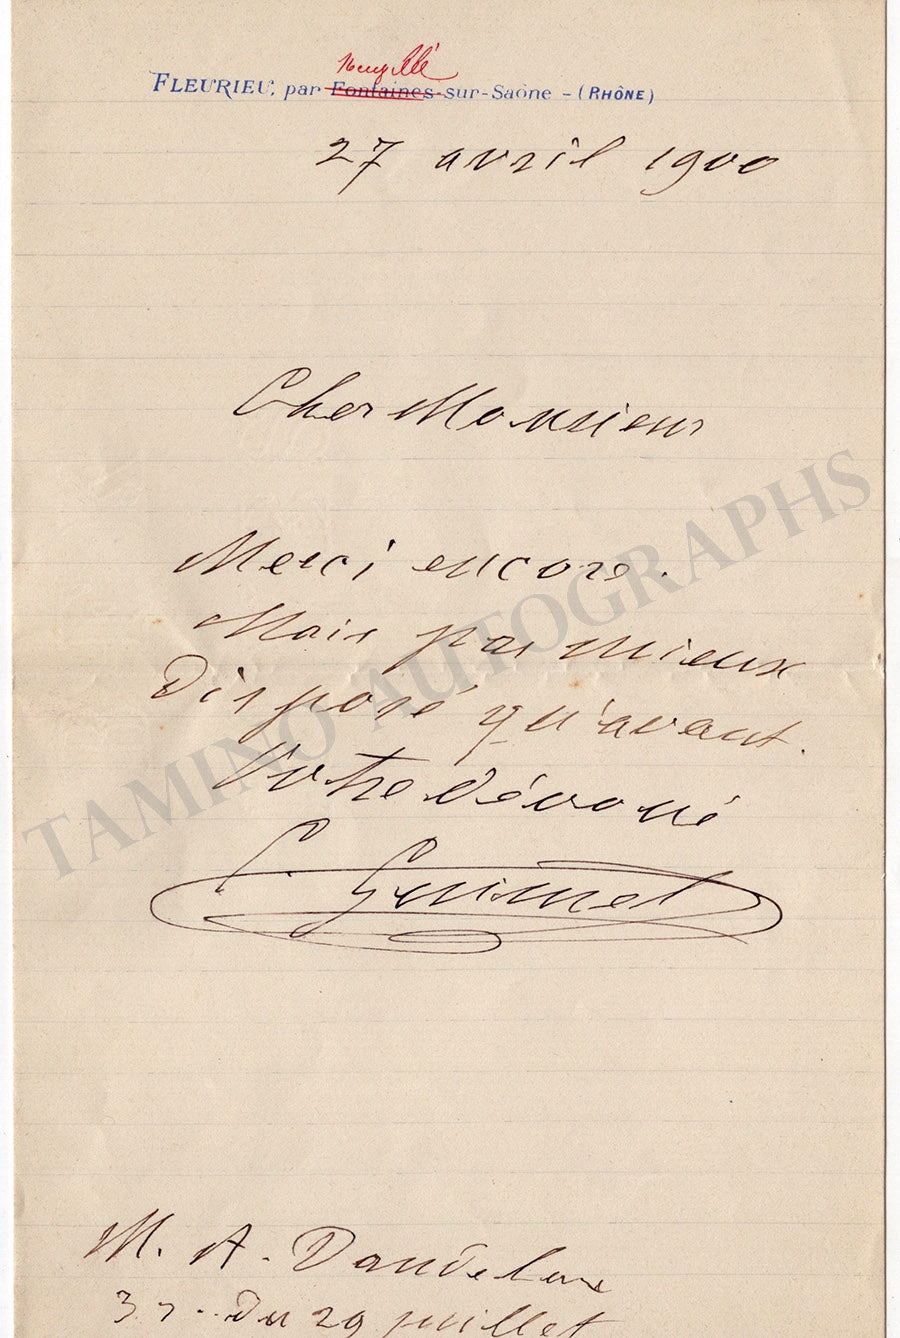 Neuville
FLEURIEU, par Fontaines-sur-Saône - (RHÔNE)
27 avril 1900
Cher Monsieur
Merci encore.
Mais pas mieux
Disposé qu'avant.
Votre Dévoué
E. Guimet
M. A. Dandelot
37 - Du 29 juillet
TAMINO AUTOGRAPHS